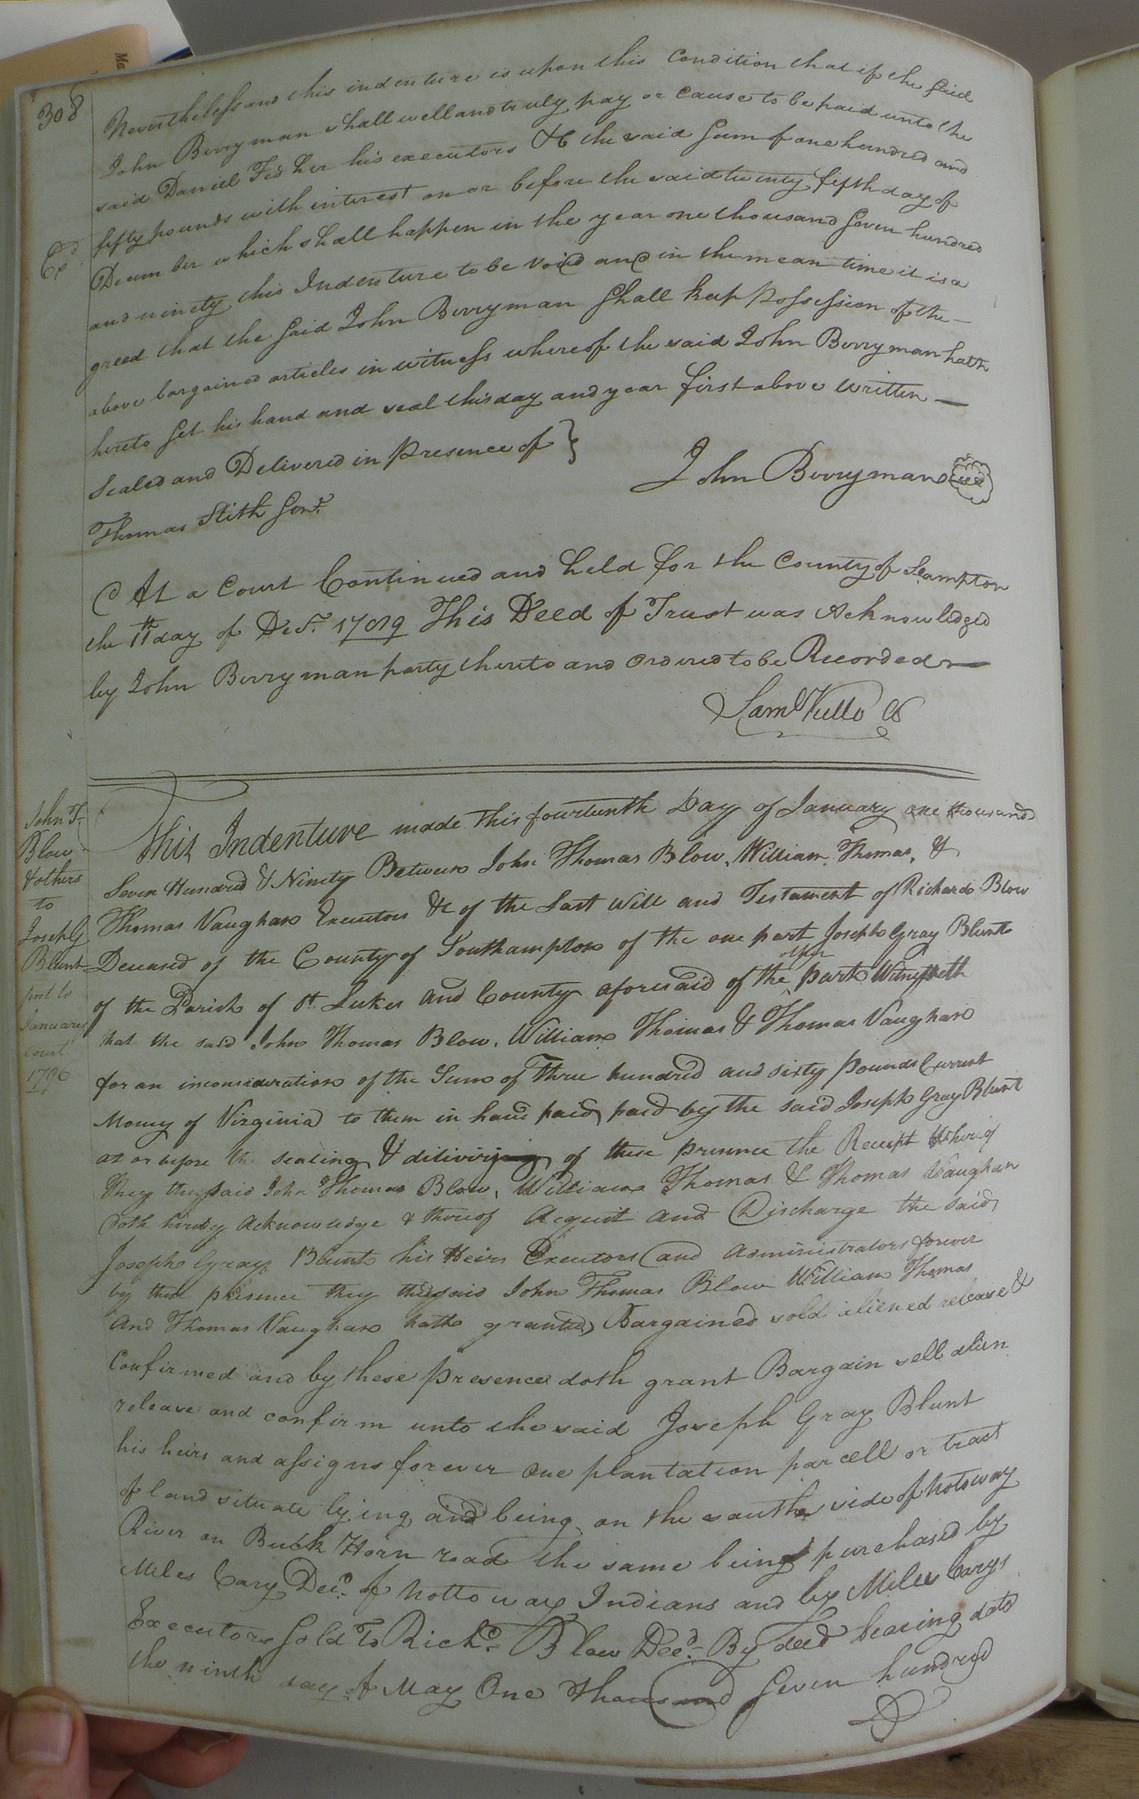 308
Nevertheless and this indenture is upon this Condition that if the said
John Berryman shall well and truly pay or cause to be paid unto the
said Daniel Fisher his executors &c the said Sum of one hundred and
fifty pounds with interest on or before the said twenty fifth day of
December which shall happen in the year one thousand Seven hundred
and ninety this Indenture to be void and in the mean time it is a
greed that the Said John Berryman Shall keep Possession of the
above bargained articles in witness whereof the said John Berryman hath
hereto Set his hand and seal this day and year first above written
Exd
Sealed and Delivered in presence of
John Berryman
Thomas Stith Senr.
At a Court Continued and held for the County of Sampton
the 11th day of Decr. 1789 This Deed of Trust was Acknowledged
by John Berryman party thereto and Ordered to be Recorded
Saml
John T.
Blow
& others
to
Joseph G
Blunt
January
Court
1790
This Indenture made this fourteenth Day of January one thousand
Seven Hundred & Ninety Between John Thomas Blow, William Thomas, &
Thomas Vaughan Executors &c of the Last Will and Testament of Richard Blow
Deceased of the County of Southampton of the one part Joseph Gray Blunt
of the Parish of St. Lukes and County aforesaid of the other part Witnesseth
that the said John Thomas Blow, William Thomas & Thomas Vaughan
for an inconsideration of the Sum of Three hundred and sixty pounds Current
Money of Virginia to them in hand paid paid by the said Joseph Gray Blunt
at or before the sealing & delivering of these presence the Receipt whereof
they the said John Thomas Blow, William Thomas & Thomas Vaughan
doth hereby Acknowledge & thereof Acquit and Discharge the said
Joseph Gray Blunt his Heirs Executors and Administrators forever
by these presence they the said John Thomas Blow William Thomas
And Thomas Vaughan hath granted Bargained sold aliened release &
Confirmed and by these presence doth grant Bargain sell alien
release and confirm unto the said Joseph Gray Blunt
his heirs and assigns forever one plantation parcell or tract
of land situate lying and being on the south side of Notoway
River on Buck Horn road the same being purchased by
Miles Cary Decd. of Nottoway Indians and by Miles Carys
Executors Sold To Richd. Blow Decd. By deed bearing date
the ninth day of May One thousand Seven hundred